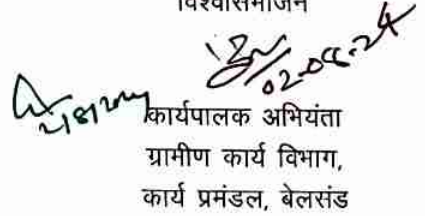 विश्वासभाजन
02-08-24
कार्यपालक अभियंता
ग्रामीण कार्य विभाग,
कार्य प्रमंडल, बेलसंड